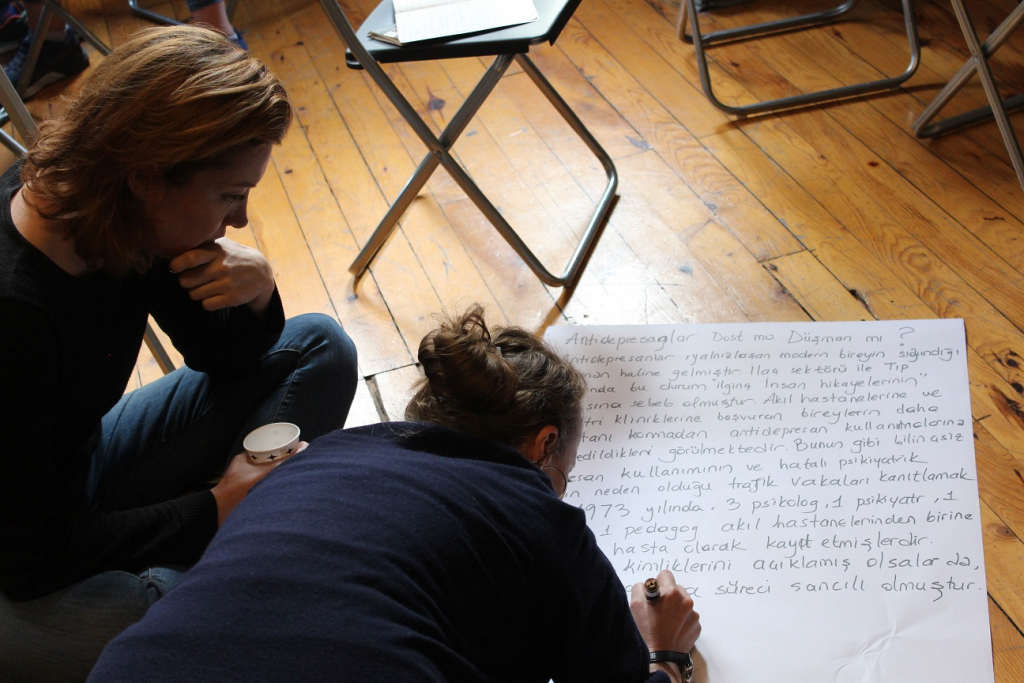 Antidepresağlar Dost mu Düşman mı ?
Antidepresanlar yalnızlaşan modern bireyin sığındığı
haline gelmiştir. İlaç sektörü ile Tıp
bu durum "ilginç İnsan hikayelerinin"
sebeb olmuştur. Akıl hastanelerine ve
kliniklerine başvuran bireylerin daha
konmadan antidepresan kullanımlarına
görülmektedir. Bunun gibi bilinçsiz
kullanımının ve hatalı psikiyatrik
neden olduğu trafik vakaları kanıtlamak
1973 yılında, 3 psikolog, 1 psikiyatr, 1
1 pedagog akıl hastanelerinden birine
hasta olarak kayıt etmişlerdir.
kimliklerini açıklamış olsalar da,
süreci sancılı olmuştur.